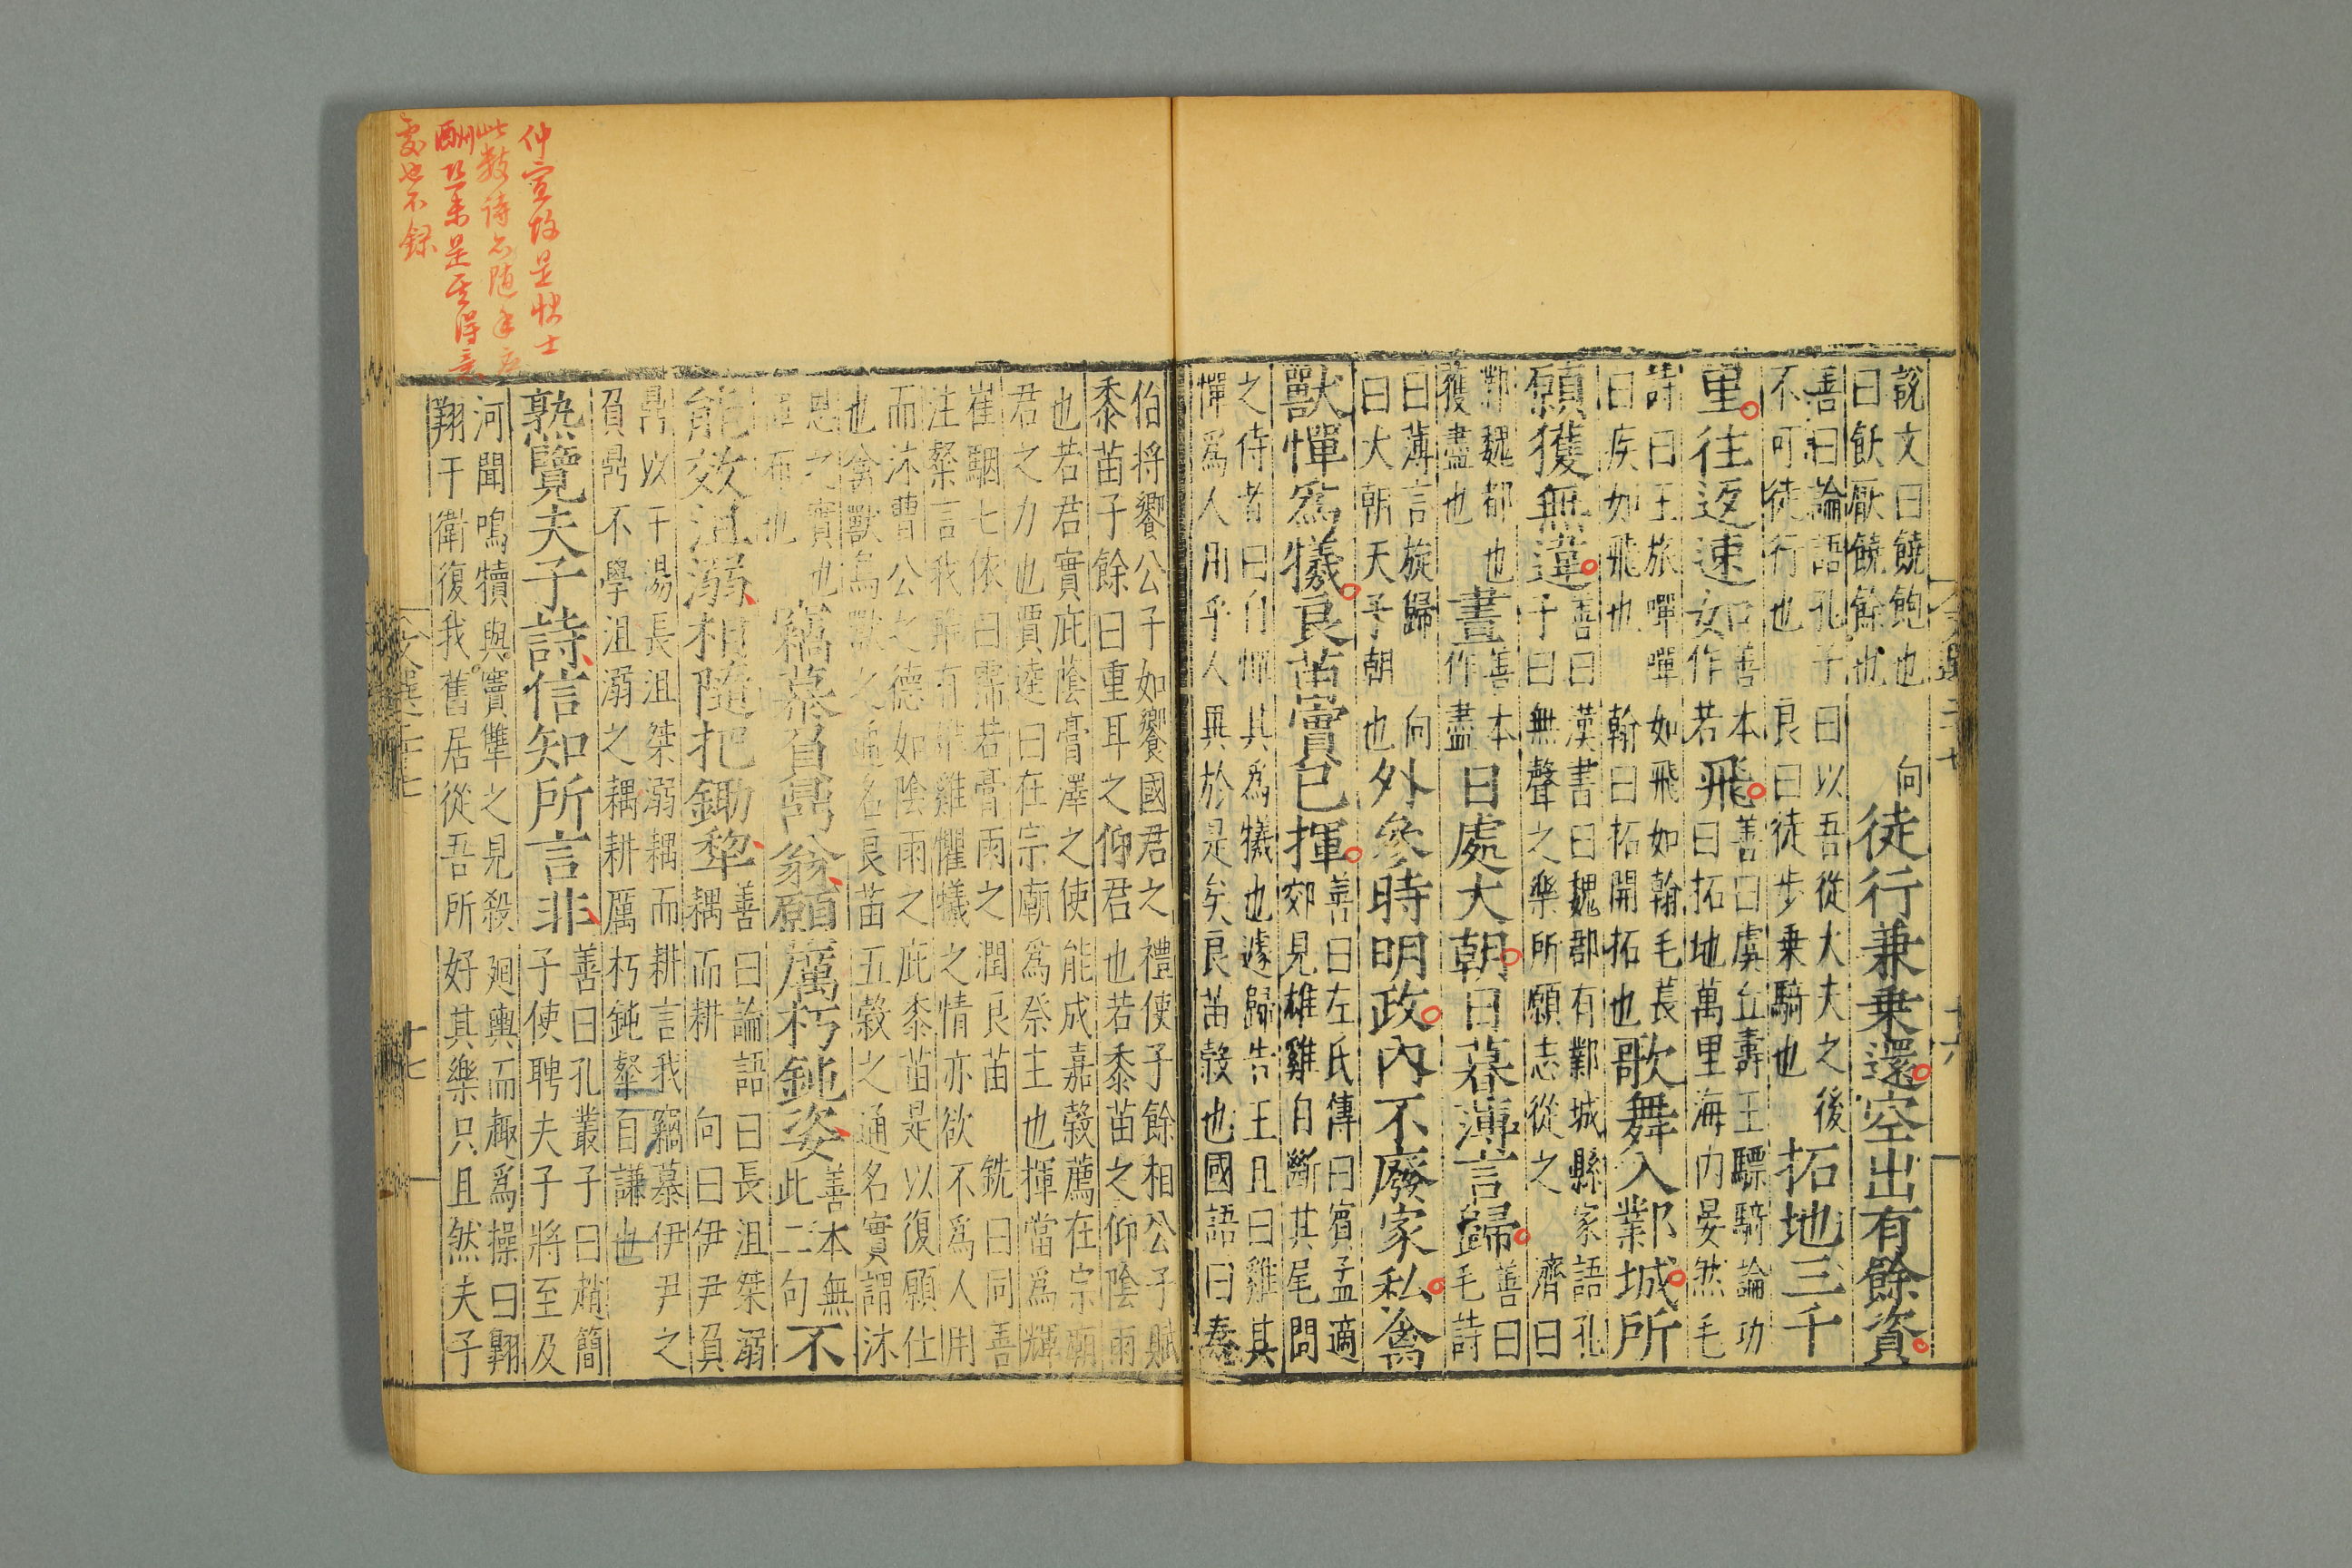 說文曰饒飽也　向
曰飫厭饒餘也
徒行兼乗還空出有餘資
善曰論語孔子曰以吾從大夫之後
不可徒行也　良曰徒步乗騎也
拓地三千
里往返速如
善本
作若
飛
善曰虞丘壽王驃騎論功
曰拓地萬里海内晏然毛
詩曰王旅嘽嘽如飛如翰毛萇
曰疾如飛也　翰曰拓開拓也
歌舞入鄴城所
願獲無違
善曰漢書曰魏郡有鄴城縣家語孔
子曰無聲之樂所願志從之　濟曰
鄴魏都也
獲盡也
晝
善本
作盡
日處大朝日暮薄言歸
善曰
毛詩
曰薄言旋歸　向
曰大朝天子朝也
外參時明政内不廢家私禽
獸憚爲犧良苗實已揮
善曰左氏傳曰賓孟適
郊見雄雞自斷其尾問
之侍者曰自憚其爲犧也遽歸告王且曰雞其
憚爲人用乎人異於是矣良苗榖也國語曰秦
十六
伯將饗公子如饗國君之禮使子餘相公子賦
黍苗子餘曰重耳之仰君也若黍苗之仰陰雨
也若君實庇蔭膏澤之使能成嘉榖薦在宗廟
君之力也賈逵曰在宗廟爲祭主也揮當爲輝
崔駰七依曰霈若膏雨之潤良苗　銑曰同善
注粲言我雖有雄雞懼犧之情亦欲不爲人用
而沐曹公之德如陰雨之庇黍苗是以復願仕
也禽獸鳥獸之通名良苗五榖之通名實謂沐
恩之實也
揮布也
竊慕負鼎翁願厲朽鈍姿
善本無
此二句
不
能效沮溺相隨把鋤犂
善曰論語曰長沮桀溺
耦而耕　向曰伊尹負
鼎以干湯長沮桀溺耦而耕言我竊慕伊尹之
負鼎不學沮溺之耦耕厲朽鈍粲自謙也
熟覽夫子詩信知所言非
善曰孔叢子曰趙簡
子使聘夫子將至及
河聞鳴犢與竇犨之見殺廻輿而趣爲操曰翺
翔于衛復我舊居從吾所好其樂只且然夫子
文選二十七
十七
仲宣故是快士
此數詩
是其得意
處也不録